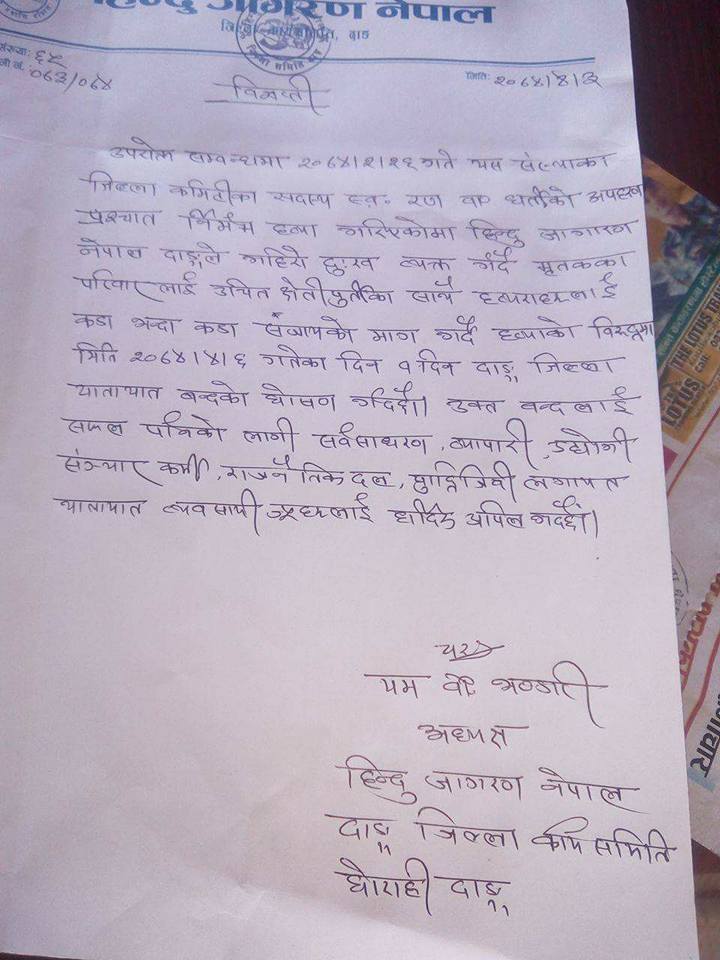 हिन्दु जागरण नेपाल
दाङ
संख्या: ६५
०६३/०६४
मिति: २०६४।४।३
विज्ञप्ती
उपरोक्त सम्वन्धमा २०६४।२।२६ गते यस संस्थाका
जिल्ला कमिटीका सदस्य स्व: रण व० घर्तीको अपहरण
पश्चात निर्मम हत्या गरिएकोमा हिन्दु जागरण
नेपाल दाङ्गले गहिरो दु:ख व्यक्त गर्दै मृतकका
परिवारलाई उचित क्षेतीपुर्तीका साथै हत्याराहरुलाई
कडा भन्दा कडा सजायको माग गर्दै हत्याको विरुद्धमा
मिति २०६४।४।६ गतेका दिन १ दिन दाङ्ग जिल्ला
यातायात बन्दको घोषणा गर्दछौं। उक्त बन्दलाई
सफल पार्नको लागी सर्वसाधरण, व्यापारी, उद्योगी
संञ्चार कर्मी, राजनैतिक दल, वुद्धिजिवी लगायत
यातायात व्यवसायी ज्यूहरुलाई हार्दिक अपिल गर्दछौं।
यम व० भण्डारी
अध्यक्ष
हिन्दु जागरण नेपाल
दाङ्ग जिल्ला कार्य समिति
घोराही दाङ्ग
THE LOTUS
LOTUS